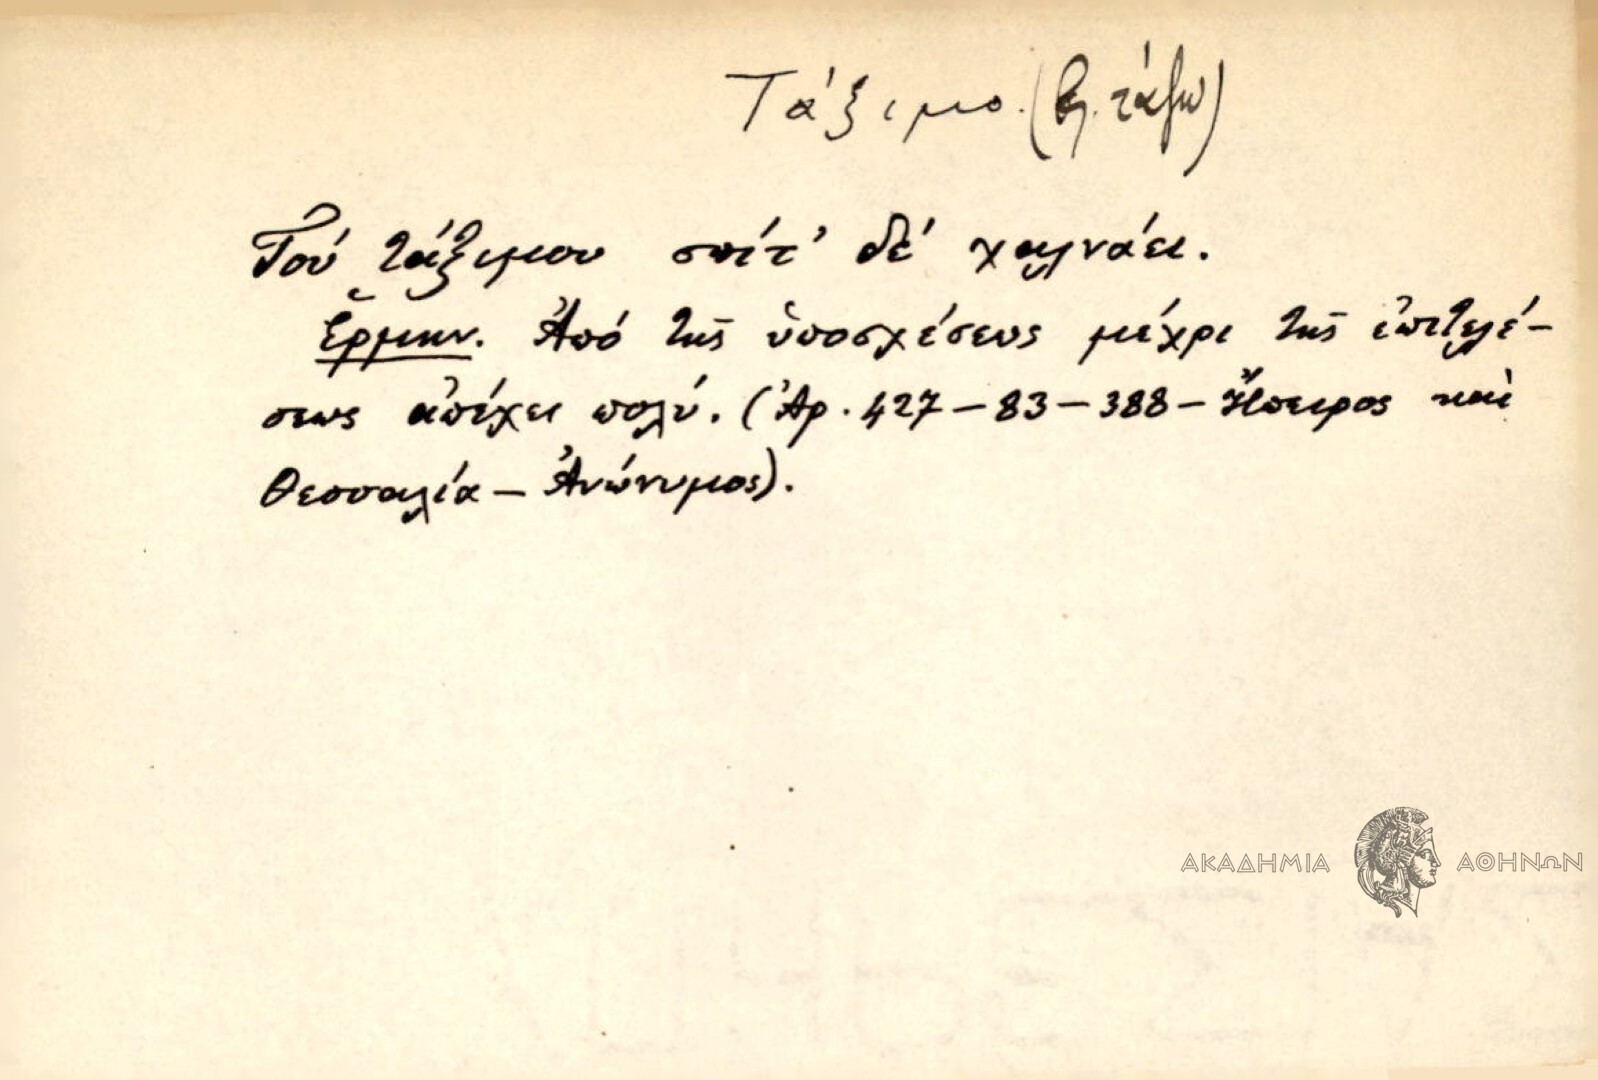 Τάξιμο. (βλ. τάζω)
Τού τάξιμου σπίτ' δέ χαλνάει.
Ἑρμην. Ἀπό τῆς ὑποσχέσεως μέχρι τῆς ἐπιτελέ-
σεως ἀπέχει πολύ. (Ἀρ. 427-83-388-Ἤπειρος καὶ
Θεσσαλία-Ἀνώνυμος).
ΑΚΑΔΗΜΙΑ ΑΘΗΝΩΝ